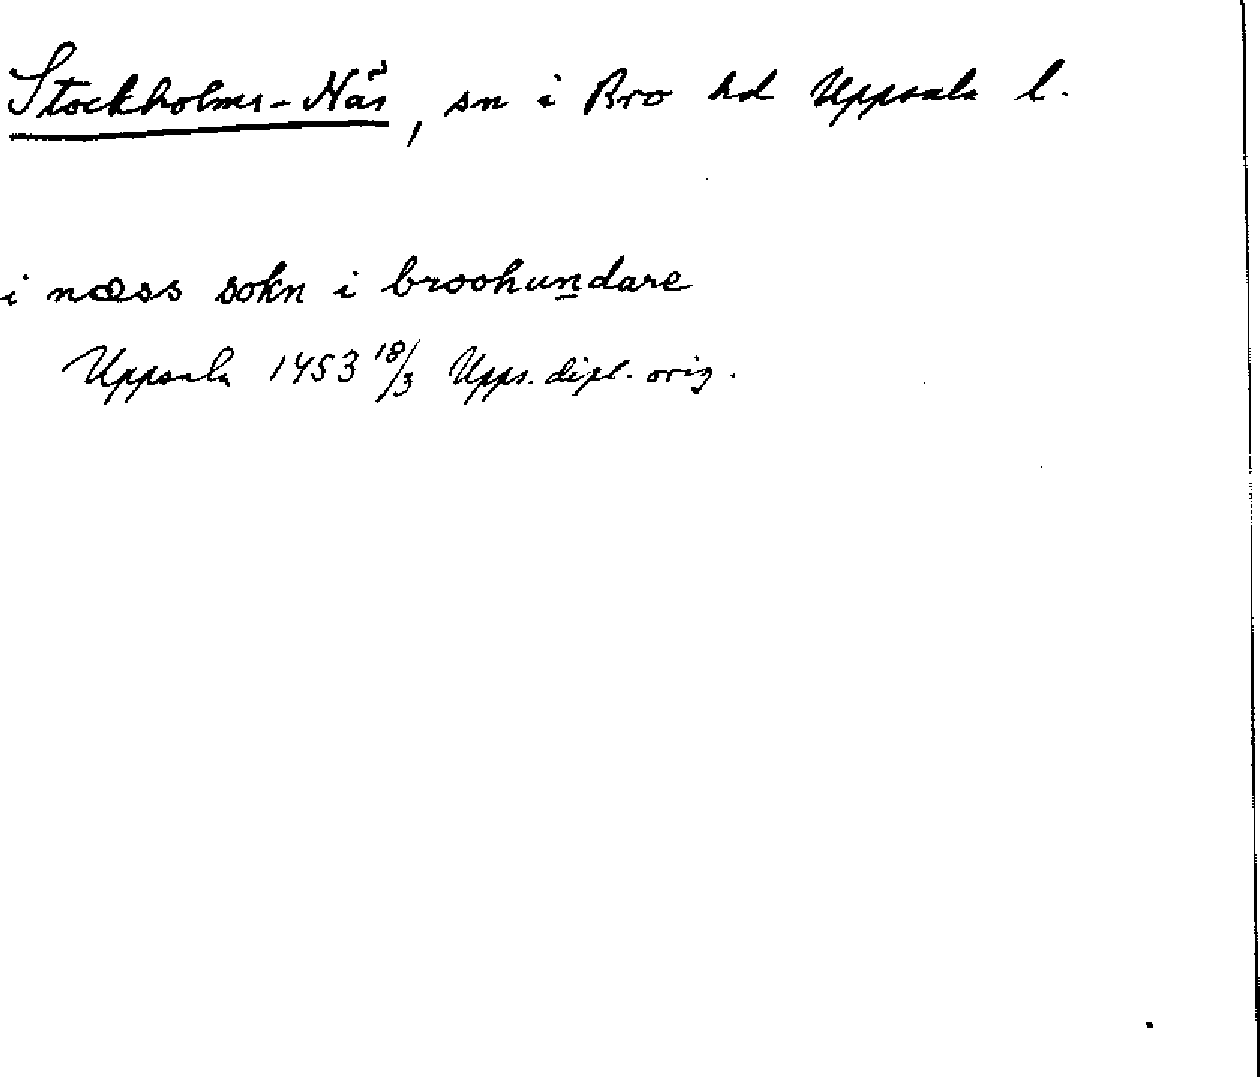 Stockholms-Näs, sn i Bro hd Uppsala l.
i næss sokn i broohundare
Uppsala 1453 18/3 Upps. dipl. orig.